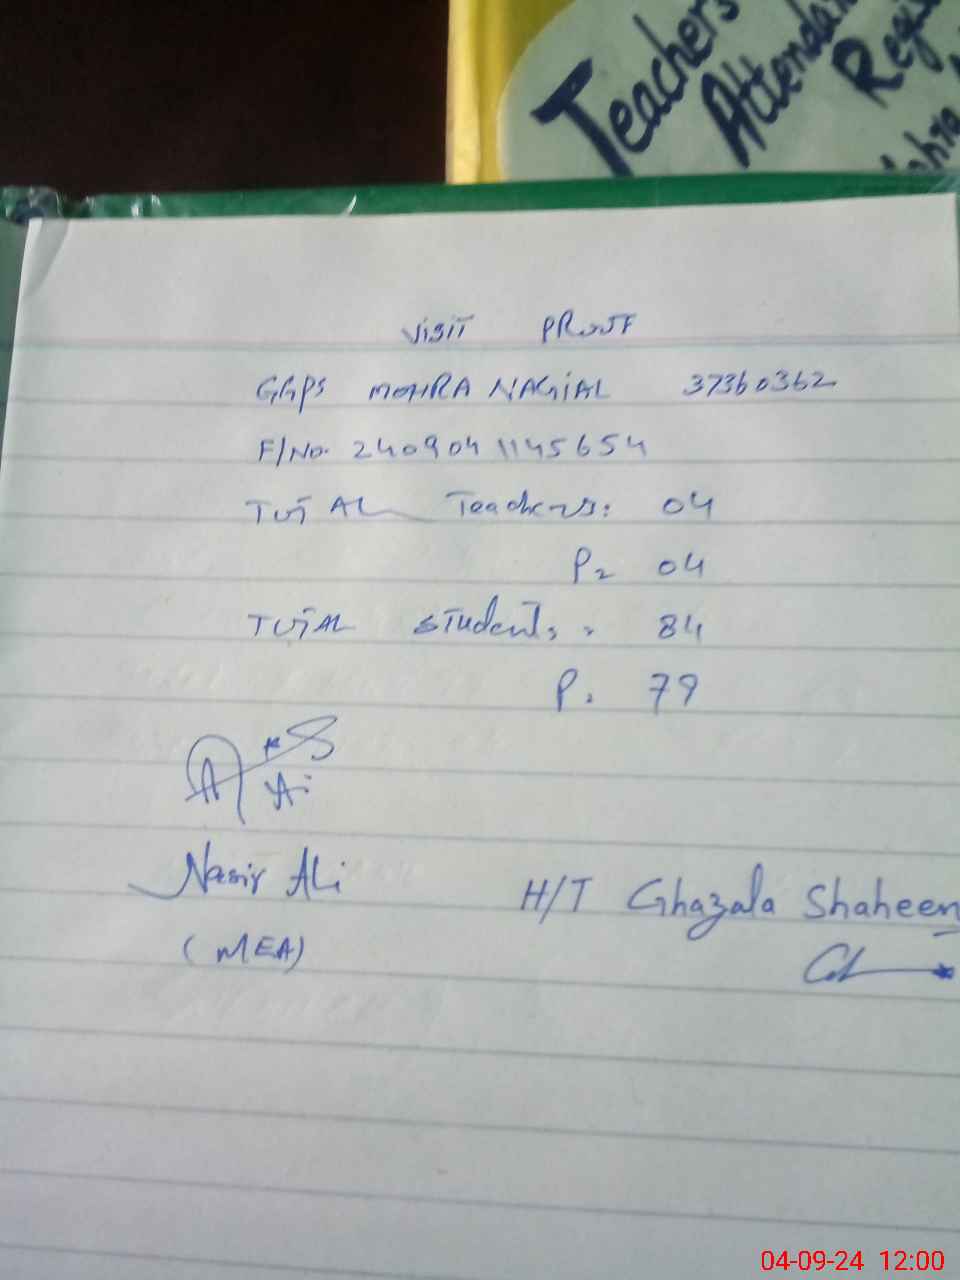 Teachers
Attenda
Regis
VISIT PROOF
GGPS MOHRA NAGIAL 37360362
F/No. 2409041145654
TOTAL Teachers: 04
P= 04
TOTAL Students = 84
P= 79
Nasir Ali
(MEA)
H/T Ghazala Shaheen
04-09-24 12:00